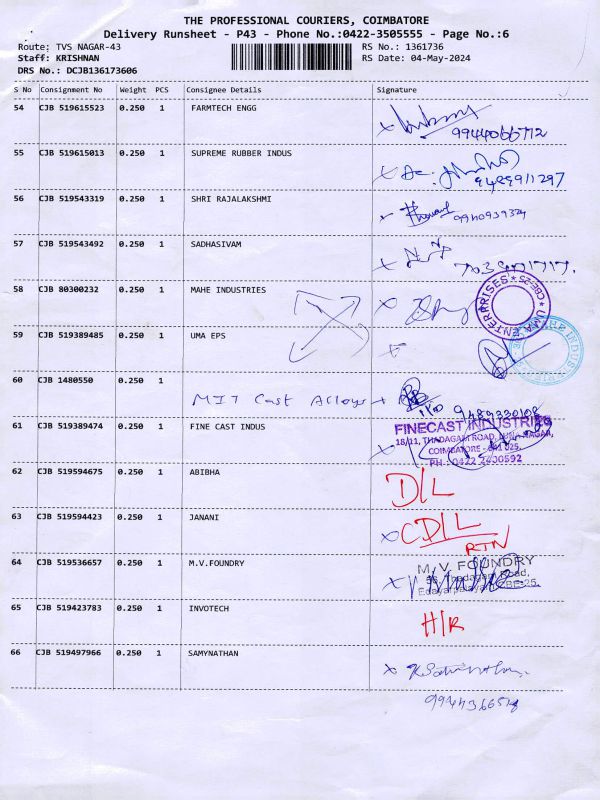 THE PROFESSIONAL COURIERS, COIMBATORE
Delivery Runsheet - P43 - Phone No.:0422-3505555 - Page No.:6
Route: TVS NAGAR-43 RS No.: 1361736
Staff: KRISHNAN RS Date: 04-May-2024
DRS No.: DCJB136173606
S No Consignment No Weight PCS Consignee Details Signature
54 CJB 519615523 0.250 1 FARMTECH ENGG
9944066772
55 CJB 519615013 0.250 1 SUPREME RUBBER INDUS
9489911297
56 CJB 519543319 0.250 1 SHRI RAJALAKSHMI
9940939324
57 CJB 519543492 0.250 1 SADHASIVAM
58 CJB 80300232 0.250 1 MAHE INDUSTRIES
UMA ENTERPRISES * CBE-25 *
59 CJB 519389485 0.250 1 UMA EPS
60 CJB 1480550 0.250 1
MIT Cast Alloys
9489330108
61 CJB 519389474 0.250 1 FINE CAST INDUS
FINECAST INDUSTRIES
18/11, THADAGAM ROAD, LUNA NAGAR,
COIMBATORE - 641 025.
PH : 0422 2400592
62 CJB 519594675 0.250 1 ABIBHA
D/L
63 CJB 519594423 0.250 1 JANANI
CD/L
RTN
64 CJB 519536657 0.250 1 M.V.FOUNDRY
M.V. FOUNDRY
Thadagam Road,
Edayarpalayam, CBE-25.
65 CJB 519423783 0.250 1 INVOTECH
H/R
66 CJB 519497966 0.250 1 SAMYNATHAN